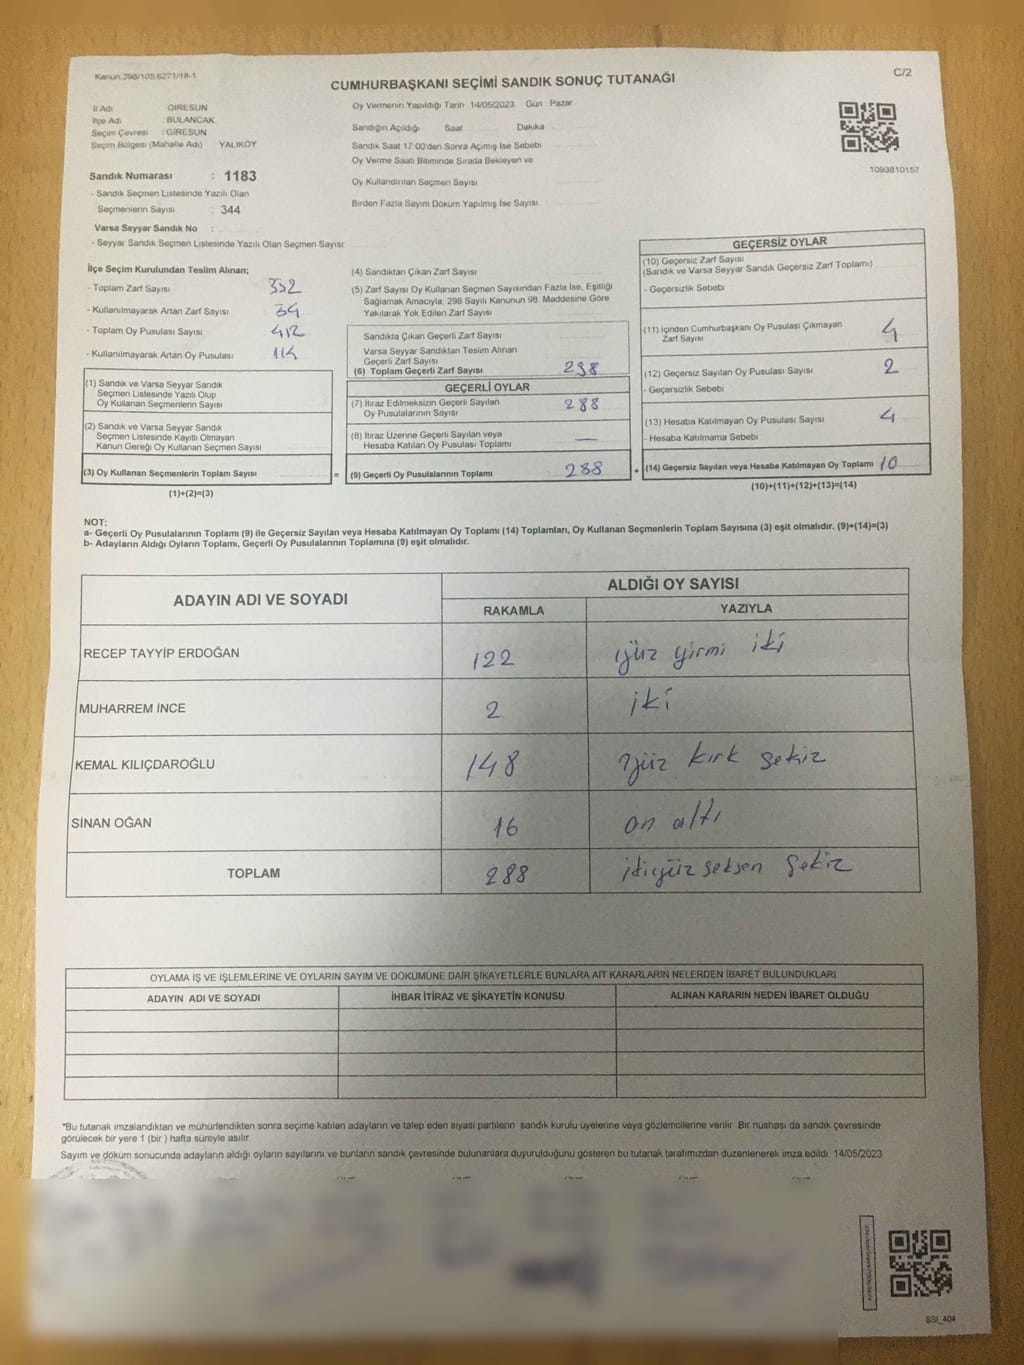 Kanun.298/105,6271/18-1
CUMHURBAŞKANI SEÇİMİ SANDIK SONUÇ TUTANAĞI
C/2
İl Adı GİRESUN
İlçe Adı : BULANCAK
Seçim Çevresi : GİRESUN
Seçim Bölgesi (Mahalle Adı) YALIKÖY
Oy Vermenin Yapıldığı Tarih 14/05/2023 Gün : Pazar
Sandığın Açıldığı Saat Dakika
Sandık Saat 17.00'den Sonra Açılmış İse Sebebi
Oy Verme Saati Bitiminde Sırada Bekleyen ve
Oy Kullandırılan Seçmen Sayısı
Birden Fazla Sayım Döküm Yapılmış İse Sayısı
1093810157
Sandık Numarası : 1183
- Sandık Seçmen Listesinde Yazılı Olan
Seçmenlerin Sayısı : 344
Varsa Seyyar Sandık No :
- Seyyar Sandık Seçmen Listesinde Yazılı Olan Seçmen Sayısı
İlçe Seçim Kurulundan Teslim Alınan;
- Toplam Zarf Sayısı 332
- Kullanılmayarak Artan Zarf Sayısı 34
- Toplam Oy Pusulası Sayısı 412
- Kullanılmayarak Artan Oy Pusulası 114
(1) Sandık ve Varsa Seyyar Sandık
Seçmen Listesinde Yazılı Olup
Oy Kullanan Seçmenlerin Sayısı
(2) Sandık ve Varsa Seyyar Sandık
Seçmen Listesinde Kayıtlı Olmayan
Kanun Gereği Oy Kullanan Seçmen Sayısı
(3) Oy Kullanan Seçmenlerin Toplam Sayısı =
(1)+(2)=(3)
(4) Sandıktan Çıkan Zarf Sayısı
(5) Zarf Sayısı Oy Kullanan Seçmen Sayısından Fazla İse, Eşitliği
Sağlamak Amacıyla, 298 Sayılı Kanunun 98. Maddesine Göre
Yakılarak Yok Edilen Zarf Sayısı
Sandıkta Çıkan Geçerli Zarf Sayısı
Varsa Seyyar Sandıktan Teslim Alınan
Geçerli Zarf Sayısı
(6) Toplam Geçerli Zarf Sayısı 298
GEÇERLİ OYLAR
(7) İtiraz Edilmeksizin Geçerli Sayılan
Oy Pusulalarının Sayısı 288
(8) İtiraz Üzerine Geçerli Sayılan veya
Hesaba Katılan Oy Pusulası Toplamı —
(9) Geçerli Oy Pusulalarının Toplamı 288 +
GEÇERSİZ OYLAR
(10) Geçersiz Zarf Sayısı
(Sandık ve Varsa Seyyar Sandık Geçersiz Zarf Toplamı)
- Geçersizlik Sebebi
(11) İçinden Cumhurbaşkanı Oy Pusulası Çıkmayan
Zarf Sayısı 4
(12) Geçersiz Sayılan Oy Pusulası Sayısı 2
- Geçersizlik Sebebi
(13) Hesaba Katılmayan Oy Pusulası Sayısı 4
- Hesaba Katılmama Sebebi
(14) Geçersiz Sayılan veya Hesaba Katılmayan Oy Toplamı 10
(10)+(11)+(12)+(13)=(14)
NOT:
a- Geçerli Oy Pusulalarının Toplamı (9) ile Geçersiz Sayılan veya Hesaba Katılmayan Oy Toplamı (14) Toplamları, Oy Kullanan Seçmenlerin Toplam Sayısına (3) eşit olmalıdır. (9)+(14)=(3)
b- Adayların Aldığı Oyların Toplamı, Geçerli Oy Pusulalarının Toplamına (9) eşit olmalıdır.
ADAYIN ADI VE SOYADI ALDIĞI OY SAYISI
RAKAMLA YAZIYLA
RECEP TAYYİP ERDOĞAN 122 yüz yirmi iki
MUHARREM İNCE 2 iki
KEMAL KILIÇDAROĞLU 148 yüz kırk sekiz
SİNAN OĞAN 16 on altı
TOPLAM 288 ikiyüz seksen sekiz
OYLAMA İŞ VE İŞLEMLERİNE VE OYLARIN SAYIM VE DÖKÜMÜNE DAİR ŞİKAYETLERLE BUNLARA AİT KARARLARIN NELERDEN İBARET BULUNDUKLARI
ADAYIN ADI VE SOYADI İHBAR İTİRAZ VE ŞİKAYETİN KONUSU ALINAN KARARIN NEDEN İBARET OLDUĞU
*Bu tutanak imzalandıktan ve mühürlendikten sonra seçime katılan adayların ve talep eden siyasi partilerin sandık kurulu üyelerine veya gözlemcilerine verilir. Bir nüshası da sandık çevresinde
görülecek bir yere 1 (bir ) hafta süreyle asılır.
Sayım ve döküm sonucunda adayların aldığı oyların sayılarını ve bunların sandık çevresinde bulunanlara duyurulduğunu gösteren bu tutanak tarafımızdan düzenlenerek imza edildi. 14/05/2023
SSI_404